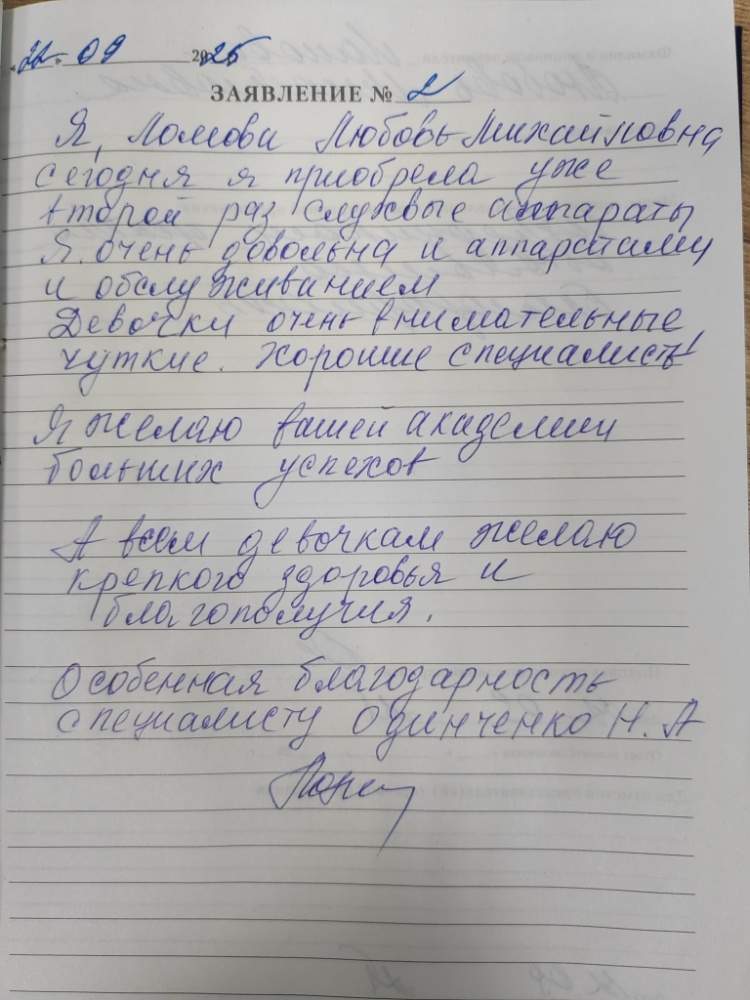 «22» 09 2025
ЗАЯВЛЕНИЕ № 2
Я, Ломова Любовь Михайловна
сегодня я приобрела уже
второй раз слуховые аппараты
Я очень довольна и аппаратами
и обслуживанием
Девочки очень внимательные,
чуткие. Хорошие специалисты
Я желаю вашей академии
больших успехов
А всем девочкам желаю
крепкого здоровья и
благополучия.
Особенная благодарность
специалисту Одинченко Н. А